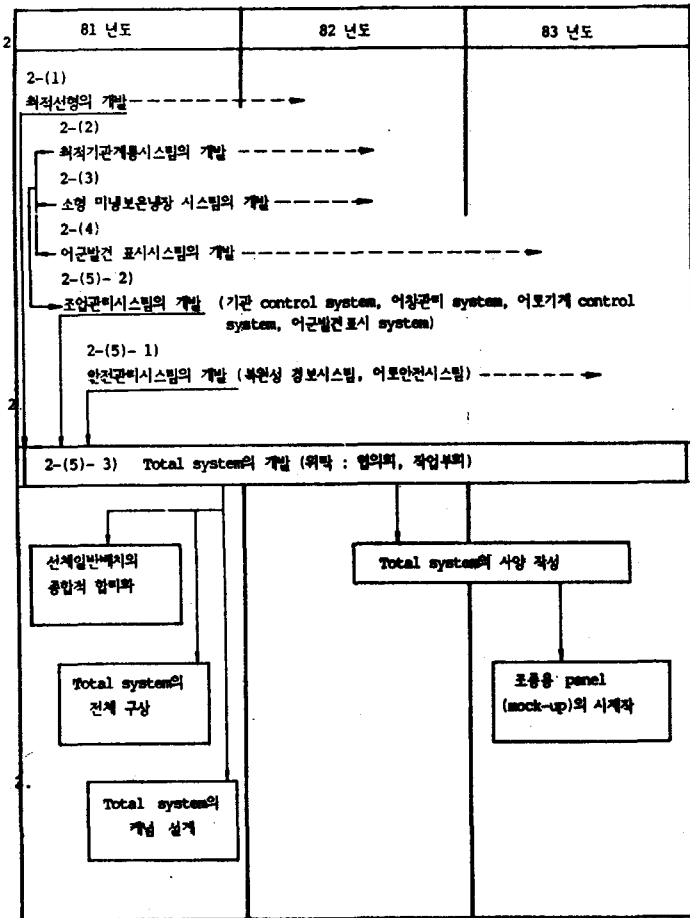 81 년도
82 년도
83 년도
2
2-(1)
최적선형의 개발
2-(2)
최적기관계통시스템의 개발
2-(3)
소형 미냉보온냉장 시스템의 개발
2-(4)
어군발견 표시시스템의 개발
2-(5)- 2)
조업관리시스템의 개발 (기관 control system, 어창관리 system, 어로기계 control
system, 어군발견표시 system)
2-(5)- 1)
안전관리시스템의 개발 (복원성 경보시스템, 어로안전시스템)
2
2-(5)- 3) Total system의 개발 (위탁 : 협의회, 작업부회)
선체일반배치의
종합적 합리화
Total system의 사양 작성
Total system의
전체 구상
조종용 panel
(mock-up)의 시제작
2.
Total system의
개념 설계